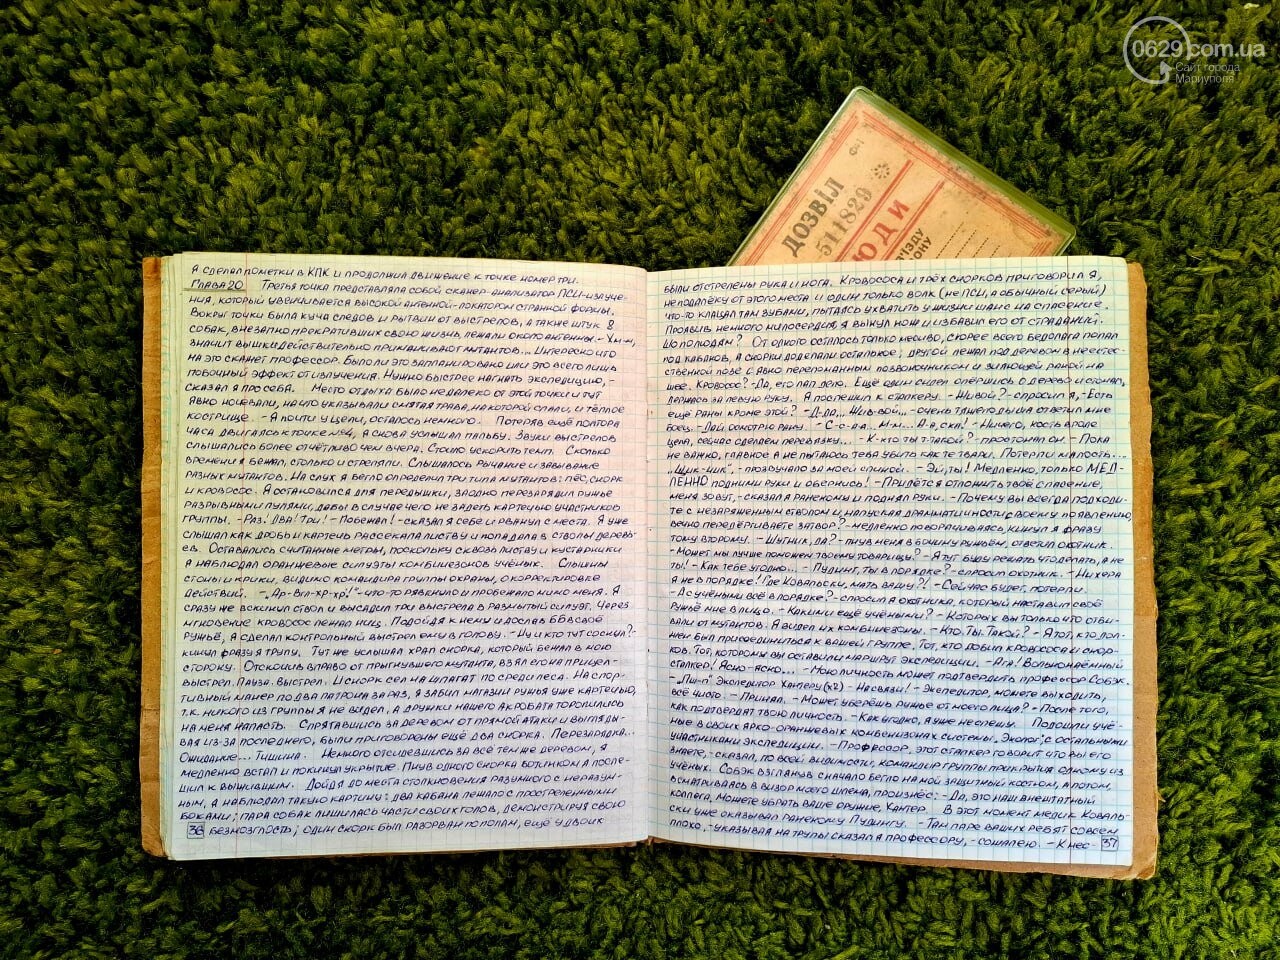 0629.com.ua
Сайт города
Мариуполя
ДОЗВІЛ
511829
ЮДИ
Я СДЕЛАЛ ПОМЕТКИ В КПК И ПРОДОЛЖИЛ ДВИЖЕНИЕ К ТОЧКЕ НОМЕР ТРИ.
ГЛАВА 20 ТРЕТЬЯ ТОЧКА ПРЕДСТАВЛЯЛА СОБОЙ СКАНЕР-АНАЛИЗАТОР ПСИ-ИЗЛУЧЕ-
НИЯ, КОТОРЫЙ УВЕНЧИВАЕТСЯ ВЫСОКОЙ АНТЕННОЙ-ЛОКАТОРОМ СТРАННОЙ ФОРМЫ.
ВОКРУГ ТОЧКИ БЫЛА КУЧА СЛЕДОВ И РЫТВИН ОТ ВЫСТРЕЛОВ, А ТАКЖЕ ШТУК 8
СОБАК, ВНЕЗАПНО ПРЕКРАТИВШИХ СВОЮ ЖИЗНЬ, ЛЕЖАЛИ ОКОЛО АНТЕННЫ. - ХМ-М,
ЗНАЧИТ ВЫШКИ ДЕЙСТВИТЕЛЬНО ПРИМАНИВАЮТ МУТАНТОВ... ИНТЕРЕСНО ЧТО
НА ЭТО СКАЖЕТ ПРОФЕССОР. БЫЛО ЛИ ЭТО ЗАПЛАНИРОВАНО ИЛИ ЭТО ВСЕГО ЛИШЬ
ПОБОЧНЫЙ ЭФФЕКТ ОТ ИЗЛУЧЕНИЯ. НУЖНО БЫСТРЕЕ НАГНАТЬ ЭКСПЕДИЦИЮ, -
СКАЗАЛ Я ПРО СЕБЯ. МЕСТО ОТДЫХА БЫЛО НЕДАЛЕКО ОТ ЭТОЙ ТОЧКИ И ТУТ
ЯВНО НОЧЕВАЛИ, НА ЧТО УКАЗЫВАЛИ СМЯТАЯ ТРАВА, НА КОТОРОЙ СПАЛИ, И ТЁПЛОЕ
КОСТРИЩЕ. - Я ПОЧТИ У ЦЕЛИ, ОСТАЛОСЬ НЕМНОГО. ПОТЕРЯВ ЕЩЁ ПОЛТОРА
ЧАСА ДВИГАЛСЯ К ТОЧКЕ №4, Я СНОВА УСЛЫШАЛ ПАЛЬБУ. ЗВУКИ ВЫСТРЕЛОВ
СЛЫШАЛИСЬ БОЛЕЕ ОТЧЁТЛИВО ЧЕМ ВЧЕРА. СТОИЛО УСКОРИТЬ ТЕМП. СКОЛЬКО
ВРЕМЕНИ Я БЕЖАЛ, СТОЛЬКО И СТРЕЛЯЛИ. СЛЫШАЛОСЬ РЫЧАНИЕ И ЗАВЫВАНИЕ
РАЗНЫХ МУТАНТОВ. НА СЛУХ Я БЕГЛО ОПРЕДЕЛИЛ ТРИ ТИПА МУТАНТОВ: ПЁС, СНОРК
И КРОВОСОС. Я ОСТАНОВИЛСЯ ДЛЯ ПЕРЕДЫШКИ, ЗАОДНО ПЕРЕЗАРЯДИЛ РУЖЬЕ
РАЗРЫВНЫМИ ПУЛЯМИ, ДАБЫ В СЛУЧАЕ ЧЕГО НЕ ЗАДЕТЬ КАРТЕЧЬЮ УЧАСТНИКОВ
ГРУППЫ. - РАЗ! ДВА! ТРИ! - ПОБЕЖАЛ! - СКАЗАЛ Я СЕБЕ И РВАНУЛ С МЕСТА. Я УЖЕ
СЛЫШАЛ КАК ДРОБЬ И КАРТЕЧЬ РАССЕКАЛА ЛИСТВУ И ПОПАДАЛА В СТВОЛЫ ДЕРЕВЬ-
ЕВ. ОСТАВАЛИСЬ СЧИТАННЫЕ МЕТРЫ, ПОСКОЛЬКУ СКВОЗЬ ЛИСТВУ И КУСТАРНИКИ
Я НАБЛЮДАЛ ОРАНЖЕВЫЕ СИЛУЭТЫ КОМБИНЕЗОНОВ УЧЁНЫХ. СЛЫШНЫ
СТОНЫ И КРИКИ, ВИДИМО КОМАНДИРА ГРУППЫ ОХРАНЫ, О КОРРЕКТИРОВКЕ
ДЕЙСТВИЙ. - "АР-ВГЛ-ХР-ХР!" - ЧТО-ТО РЯВКНУЛО И ПРОБЕЖАЛО МИМО МЕНЯ. Я
СРАЗУ ЖЕ ВСКИНУЛ СТВОЛ И ВЫСАДИЛ ТРИ ВЫСТРЕЛА В РАЗМЫТЫЙ СИЛУЭТ. ЧЕРЕЗ
МГНОВЕНИЕ КРОВОСОС ЛЕЖАЛ НИЦ. ПОДОЙДЯ К НЕМУ И ДОСЛАВ БВ В СВОЁ
РУЖЬЁ, Я СДЕЛАЛ КОНТРОЛЬНЫЙ ВЫСТРЕЛ ЕМУ В ГОЛОВУ. - НУ И КТО ТУТ СОСНУЛ? -
КИНУЛ ФРАЗУ Я ТРУПУ. ТУТ ЖЕ УСЛЫШАЛ ХРАП СНОРКА, КОТОРЫЙ БЕЖАЛ В МОЮ
СТОРОНУ. ОТСКОЧИВ ВПРАВО ОТ ПРЫГНУВШЕГО МУТАНТА, ВЗЯЛ ЕГО НА ПРИЦЕЛ -
ВЫСТРЕЛ. ПАУЗА. ВЫСТРЕЛ. И СНОРК СЕЛ НА ШПАГАТ ПОСРЕДИ ЛЕСА. НА СПОР-
ТИВНЫЙ МАНЕР ПО ДВА ПАТРОНА ЗА РАЗ, Я ЗАБИЛ МАГАЗИН РУЖЬЯ УЖЕ КАРТЕЧЬЮ,
Т.К. НИКОГО ИЗ ГРУППЫ Я НЕ ВИДЕЛ, А ДРУЖКИ НАШЕГО АКРОБАТА ТОРОПИЛИСЬ
НА МЕНЯ НАПАСТЬ. СПРЯТАВШИСЬ ЗА ДЕРЕВОМ ОТ ПРЯМОЙ АТАКИ И ВЫГЛЯДЫ-
ВАЯ ИЗ-ЗА ПОСЛЕДНЕГО, БЫЛИ ПРИГОВОРЕНЫ ЕЩЁ ДВА СНОРКА. ПЕРЕЗАРЯДКА...
ОЖИДАНИЕ... ТИШИНА. НЕМНОГО ОТСИДЕВШИСЬ ЗА ВСЁ ТЕМ ЖЕ ДЕРЕВОМ, Я
МЕДЛЕННО ВСТАЛ И ПОКИНУЛ УКРЫТИЕ. ПНУВ ОДНОГО СНОРКА БОТИНКОМ Я ПОСПЕ-
ШИЛ К ВЫЖИВШИМ. ДОЙДЯ ДО МЕСТА СТОЛКНОВЕНИЯ РАЗУМНОГО С НЕРАЗУМ-
НЫМ, Я НАБЛЮДАЛ ТАКУЮ КАРТИНУ: ДВА КАБАНА ЛЕЖАЛО С ПРОСТРЕЛЕННЫМИ
БОКАМИ; ПАРА СОБАК ЛИШИЛАСЬ ЧАСТИ СВОИХ ГОЛОВ, ДЕМОНСТРИРУЯ СВОЮ
36 БЕЗМОЗГЛОСТЬ; ОДИН СНОРК БЫЛ РАЗОРВАН ПОПОЛАМ, ЕЩЁ У ДВОИХ
БЫЛИ ОТСТРЕЛЕНЫ РУКА И НОГА. КРОВОСОСА И ТРЁХ СНОРКОВ ПРИГОВОРИЛ Я,
НЕПОДАЛЁКУ ОТ ЭТОГО МЕСТА И ОДИН ТОЛЬКО ВОЛК (НЕ ПСИ, А ОБЫЧНЫЙ СЕРЫЙ)
ЧТО-ТО КЛАЦАЛ ТАМ ЗУБАМИ, ПЫТАЯСЬ УХВАТИТЬ У ЖИЗНИ ШАНС НА СПАСЕНИЕ.
ПРОЯВИВ НЕМНОГО МИЛОСЕРДИЯ, Я ВЫНУЛ НОЖ И ИЗБАВИЛ ЕГО ОТ СТРАДАНИЙ.
ШО ПО ЛЮДЯМ? ОТ ОДНОГО ОСТАЛОСЬ ТОЛЬКО МЕСИВО, СКОРЕЕ ВСЕГО БЕДОЛАГА ПОПАЛ
ПОД КАБАНОВ, А СНОРКИ ДОДЕЛАЛИ ОСТАЛЬНОЕ; ДРУГОЙ ЛЕЖАЛ ПОД ДЕРЕВОМ В НЕЕСТЕ-
СТВЕННОЙ ПОЗЕ С ЯВНО ПЕРЕЛОМАННЫМ ПОЗВОНОЧНИКОМ И ЗИЯЮЩЕЙ РАНОЙ НА
ШЕЕ. КРОВОСОС? - ДА, ЕГО ЛАП ДЕЛО. ЕЩЁ ОДИН СИДЕЛ ОПЁРШИСЬ О ДЕРЕВО И СТОНАЛ,
ДЕРЖАСЬ ЗА ЛЕВУЮ РУКУ. Я ПОСПЕШИЛ К СТАЛКЕРУ. - ЖИВОЙ? - СПРОСИЛ Я, - ЕСТЬ
ЕЩЁ РАНЫ КРОМЕ ЭТОЙ? - Д-ДА... ЖИВ-ВОЙ... - ОЧЕНЬ ТЯЖЕЛО ДЫША ОТВЕТИЛ МНЕ
БОЕЦ. - ДАЙ ОСМОТРЮ РАНУ. - С-С-А-А... М-М... А-А, СКА! - НИЧЕГО, КОСТЬ ВРОДЕ
ЦЕЛА, СЕЙЧАС СДЕЛАЕМ ПЕРЕВЯЗКУ... - К-КТО ТЫ ТАКОЙ? - ПРОСТОНАЛ ОН. - ПОКА
НЕ ВАЖНО, ГЛАВНОЕ Я НЕ ПЫТАЮСЬ ТЕБЯ УБИТЬ КАК ТЕ ТВАРИ. ПОТЕРПИ МАЛОСТЬ...
"ЩИК-ЧИК", - ПРОЗВУЧАЛО ЗА МОЕЙ СПИНОЙ. - ЭЙ, ТЫ! МЕДЛЕННО, ТОЛЬКО МЕД-
ЛЕННО ПОДНИМИ РУКИ И ОБЕРНИСЬ! - ПРИДЁТСЯ ОТЛОЖИТЬ ТВОЁ СПАСЕНИЕ,
МЕНЯ ЗОВУТ, - СКАЗАЛ Я РАНЕНОМУ И ПОДНЯЛ РУКИ. - ПОЧЕМУ ВЫ ВСЕГДА ПОДХОДИ-
ТЕ С НЕЗАРЯЖЕННЫМ СТВОЛОМ И, НАПУСКАЯ ДРАМАТИЧНОСТИ СВОЕМУ ПОЯВЛЕНИЮ,
ВЕЧНО ПЕРЕДЁРГИВАЕТЕ ЗАТВОР? - МЕДЛЕННО ПОВОРАЧИВАЯСЬ, КИНУЛ Я ФРАЗУ
ТОМУ ВТОРОМУ. - ШУТНИК, ДА? - ПНУВ МЕНЯ В БОЧИНУ РУЖЬЁМ, ОТВЕТИЛ ОХОТНИК.
- МОЖЕТ МЫ ЛУЧШЕ ПОМОЖЕМ ТВОЕМУ ТОВАРИЩУ? - Я ТУТ БУДУ РЕШАТЬ ЧТО ДЕЛАТЬ, А НЕ
ТЫ! - КАК ТЕБЕ УГОДНО... - ПУДИНГ, ТЫ В ПОРЯДКЕ? - СПРОСИЛ ОХОТНИК. - НИХЕРА
Я НЕ В ПОРЯДКЕ! ГДЕ КОВАЛЬСКИ, МАТЬ ВАШУ?! - СЕЙЧАС БУДЕТ, ПОТЕРПИ.
- А С УЧЁНЫМИ ВСЁ В ПОРЯДКЕ? - СПРОСИЛ Я ОХОТНИКА, КОТОРЫЙ НАСТАВИЛ СВОЁ
РУЖЬЁ МНЕ В ЛИЦО. - КАКИМИ ЕЩЁ УЧЁНЫМИ? - КОТОРЫХ ВЫ ТОЛЬКО ЧТО ОТБИ-
ВАЛИ ОТ МУТАНТОВ. Я ВИДЕЛ ИХ КОМБИНЕЗОНЫ. - КТО. ТЫ. ТАКОЙ? - Я ТОТ, КТО ДОЛ-
ЖЕН БЫЛ ПРИСОЕДИНИТЬСЯ К ВАШЕЙ ГРУППЕ. ТОТ, КТО ДОБИЛ КРОВОСОСА И СНОР-
КОВ. ТОТ, КОТОРОМУ ВЫ ОСТАВИЛИ МАРШРУТ ЭКСПЕДИЦИИ. - АГА! ВОЛЬНОНАЁМНЫЙ
СТАЛКЕР! ЯСНО-ЯСНО... - МОЮ ЛИЧНОСТЬ МОЖЕТ ПОДТВЕРДИТЬ ПРОФЕССОР СОБЭК.
- "ПШ-П" ЭКСПЕДИТОР ХАНТЕРУ (Х2) - НА СВЯЗИ! - ЭКСПЕДИТОР, МОЖЕТЕ ВЫХОДИТЬ,
ВСЁ ЧИСТО. - ПРИНЯЛ. - МОЖЕТ УБЕРЁШЬ РУЖЬЕ ОТ МОЕГО ЛИЦА? - ПОСЛЕ ТОГО,
КАК ПОДТВЕРДЯТ ТВОЮ ЛИЧНОСТЬ. - КАК УГОДНО, Я УЖЕ НЕ СПЕШУ. ПОДОШЛИ УЧЁ-
НЫЕ В СВОИХ ЯРКО-ОРАНЖЕВЫХ КОМБЕНИЗОНАХ СИСТЕМЫ "ЭКОЛОГ", С ОСТАЛЬНЫМИ
УЧАСТНИКАМИ ЭКСПЕДИЦИИ. - ПРОФЕССОР, ЭТОТ СТАЛКЕР ГОВОРИТ ЧТО ВЫ ЕГО
ЗНАЕТЕ, - СКАЗАЛ, ПО ВСЕЙ ВИДИМОСТИ, КОМАНДИР ГРУППЫ ПРИКРЫТИЯ ОДНОМУ ИЗ
УЧЁНЫХ. СОБЭК ВЗГЛЯНУВ СНАЧАЛО БЕГЛО НА МОЙ ЗАЩИТНЫЙ КОСТЮМ, А ПОТОМ,
ВСМАТРИВАЯСЬ В ВИЗОР МОЕГО ШЛЕМА, ПРОИЗНЁС: - ДА, ЭТО НАШ ВНЕШТАТНЫЙ
КОЛЛЕГА, МОЖЕТЕ УБРАТЬ ВАШЕ ОРУЖИЕ, ХАНТЕР. В ЭТОТ МОМЕНТ МЕДИК КОВАЛЬ-
СКИ УЖЕ ОКАЗЫВАЛ РАНЕНОМУ ПУДИНГУ. - ТАМ ПАРЕ ВАШИХ РЕБЯТ СОВСЕМ
ПЛОХО, - УКАЗЫВАЯ НА ТРУПЫ СКАЗАЛ Я ПРОФЕССОРУ, - СОЖАЛЕЮ. - К НЕС- 37